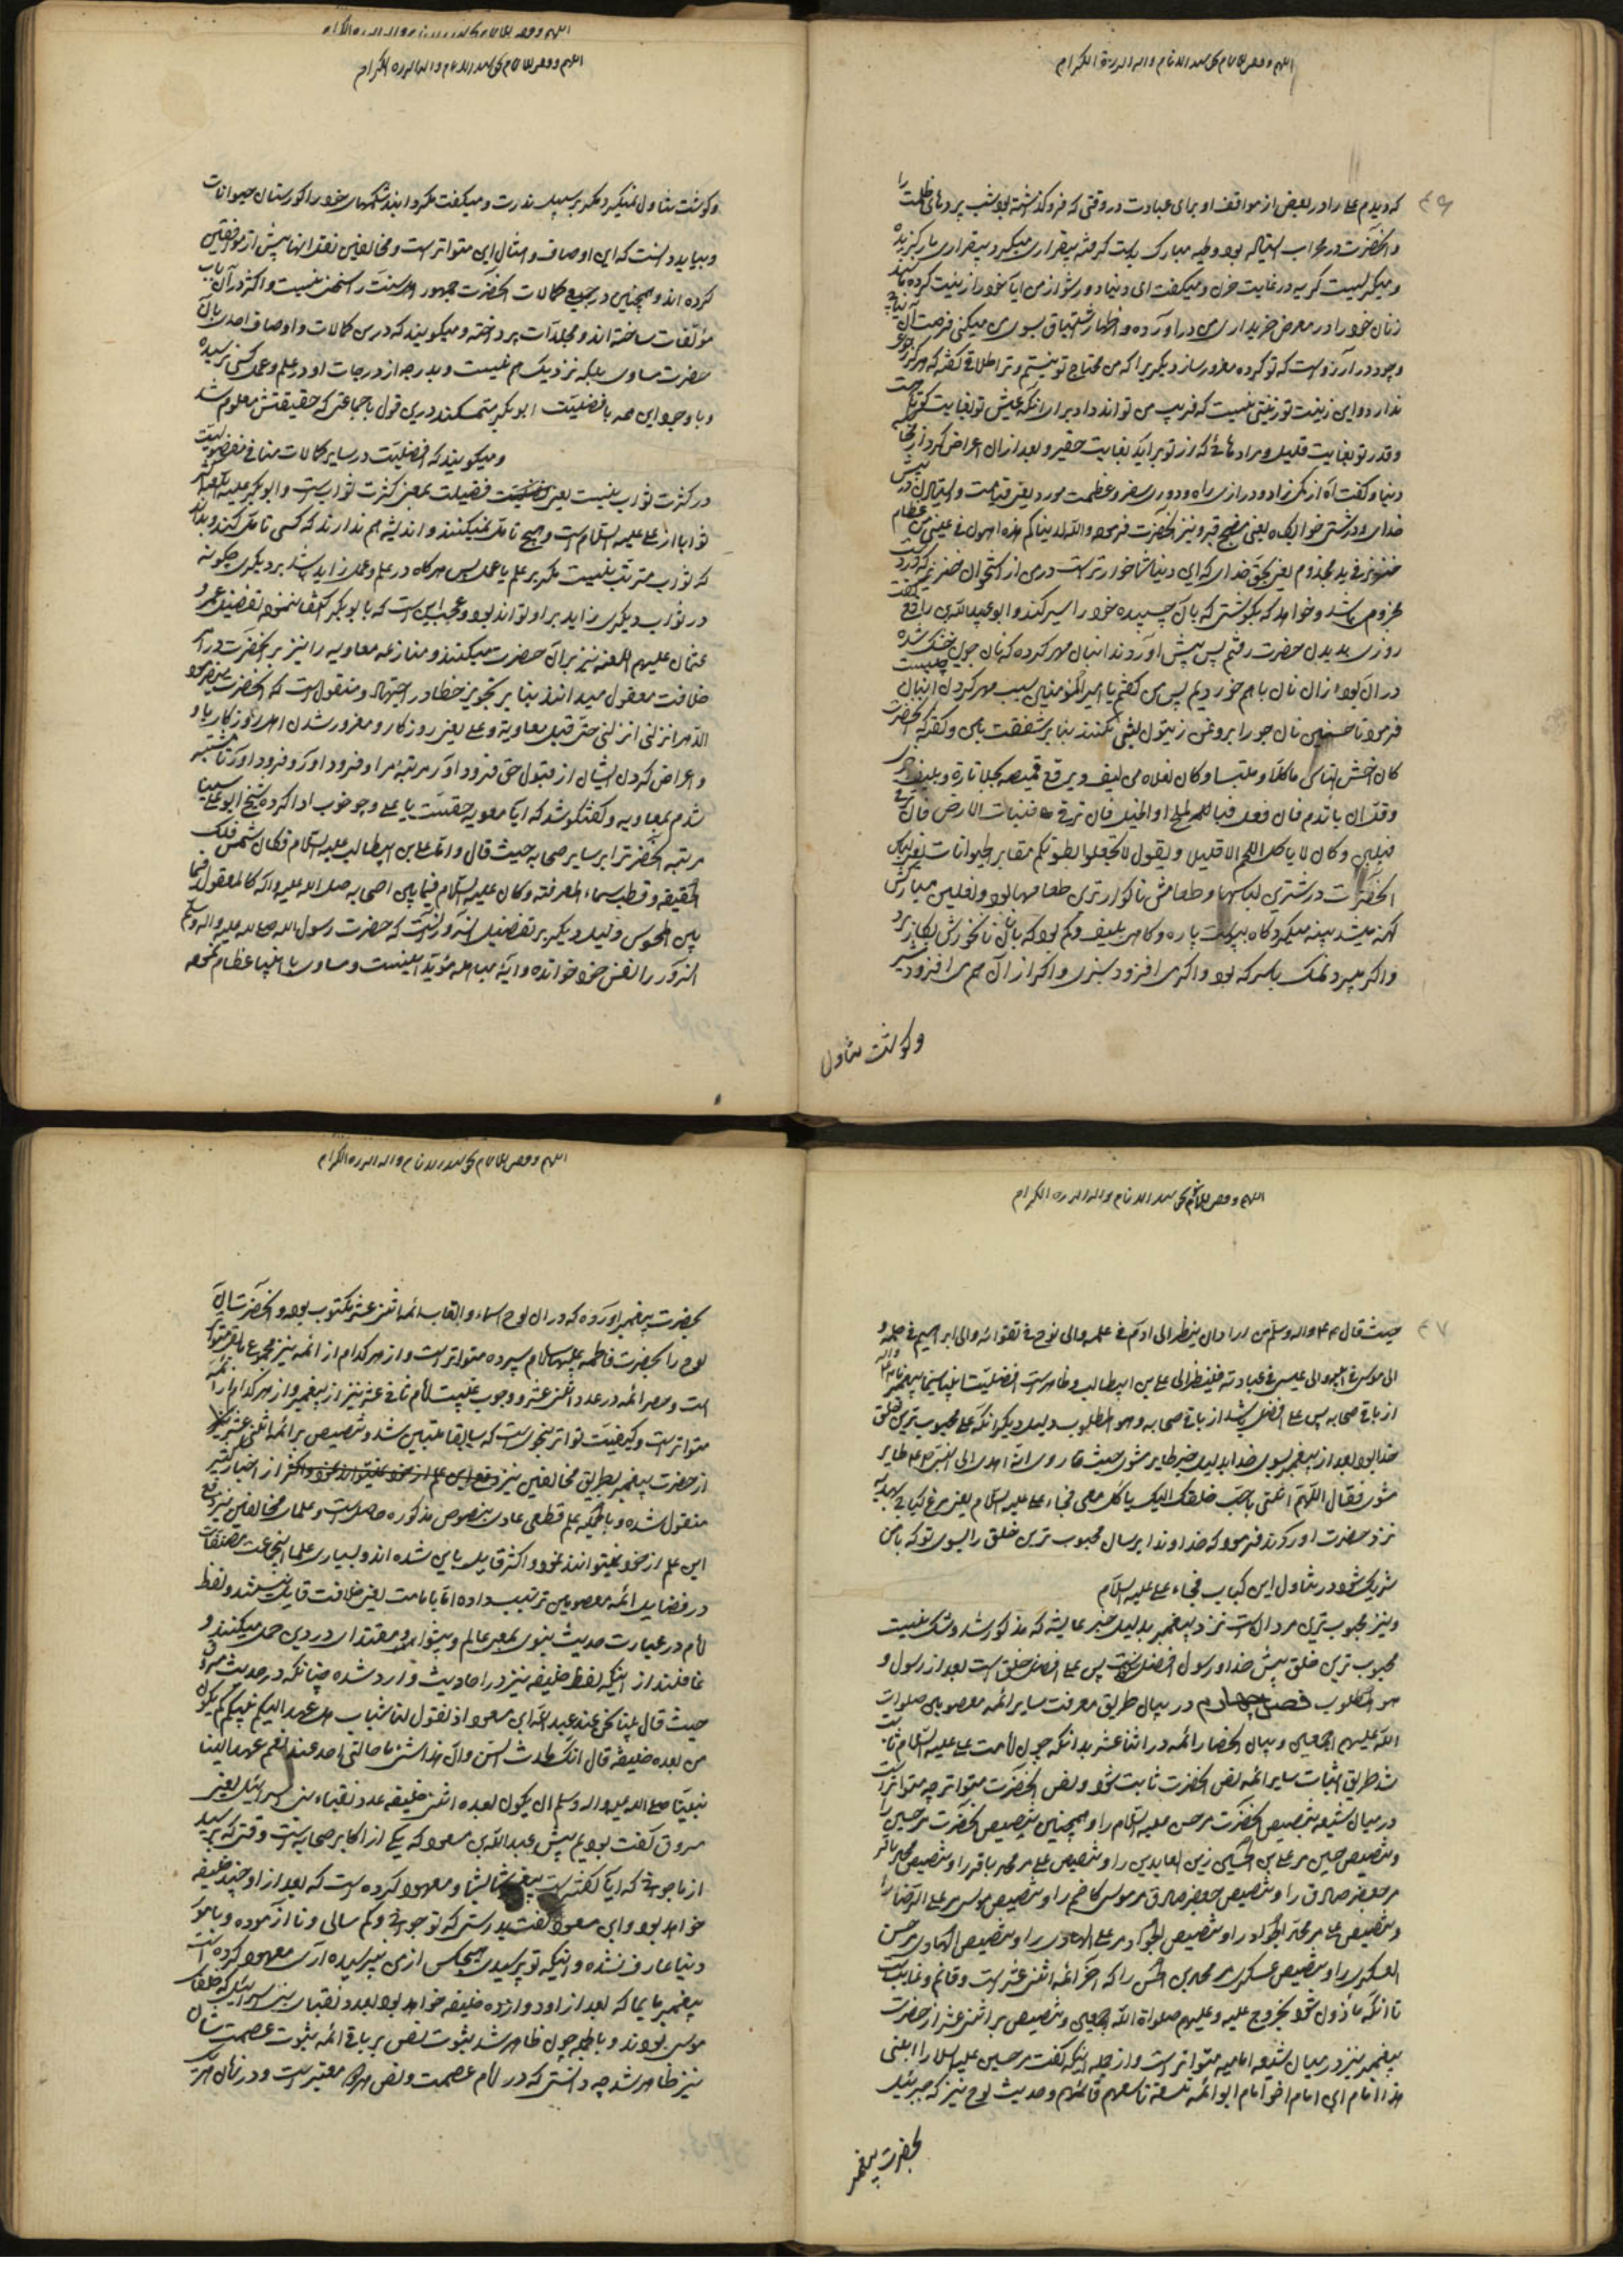 اللهم وفقنی للاتمام بحق سید الانام واله البررة الکرام
٤٦
که دیدم علی را در بعض از مواقف او برای عبادت در وقتی که فرو گذشته بود شب پردهای ظلمت را
وآنحضرت در محراب ایستاده بود ولحیه مبارک بدست گرفته بیقراری میکرد بیقراری مارگزیده
ومیگریست گریه در غایت حزن ومیگفت ای دنیا دور شو از من ایا خود را زینت کرده مانند
زنان خود را در معرض خریداری من دراورده واظهار اشتیاق بسوی من میکنی فرصت آن نیابی
وجود در آرزوست که تو کرده مغرور ساز دیگریرا که من محتاج تو نیستم وترا طلاق گفته که هرگز رجوع
ندارد واین زینت تو زینتی نیست که فریب من تواند داد برای آنکه عیش تو بغایت کوتاه است
وقدر تو بغایت قلیل ومرادهائی که از تو براید بغایت حقیر وبعد ازان اعراض کرد از
دنیا وگفت آه از کمی زاد ودرازی راه ودوری سفر وعظمت مورد یعنی قیامت
خدای ودرشتی خوابگاه یعنی مضجع قبر ونیز آنحضرت فرمود والله لدنیاکم هذه اهون فی عینی من عظام
خنزیر فی ید مجذوم یعنی بحق خدای که این دنیا شما خوارتر است در من از استخوان خنزیر که در دست
مجذوم باشد وخواهد که بگوشتی که بآن چسپیده خود را سیر کند وابو عبدالله بن رافع گفت
روزی بدیدن حضرت رفتم پس پیش اوردند انبان مهر کرده که نان جوین خشک شده
در آن بود ازان نان باهم خوردیم پس من گفتم یا امیرالمؤمنین سبب مهر کردن انبان چیست
فرمود تا حسنین نان جو را بروغن زیتون لینی نکنند بنابر شفقت بمن وگفته که آنحضرت
کان اخشن الناس ماکلا وملبسا وکان نعلاه من لیف ویرقع قمیصه بجلد تارة وبلیف اخری
وقل ان یأتدم فان فعل فبالملح او الخل فان ترقی فنبات الارض فان ترقی
فبلبن وکان لا یاکل اللحم الا قلیلا ویقول لا تجعلوا بطونکم مقابر الحیوانات یعنی لباس
آنحضرت درشترین لباسها وطعامش ناگوارترین طعامها بود ونعلین مبارکش
کهنه میشد پینه میکرد گاه بپوست پاره وگاهی بلیف وکم بود که بآن نان خورش بکار برد
واگر میبرد نمک یا سرکه بود واگر می افزود سبزی واگر ازان هم می افزود شیر
وگوشت تناول
اللهم وفقنی للاتمام بحق سید الانام واله البررة الکرام
اللهم وفقنی للاتمام بحق سید الانام واله البررة الکرام
وگوشت تناول نمیکرد مگر بر سبیل ندرت ومیگفت مگردانید شکمهای خود را گورستان حیوانات
وبباید دانست که این اوصاف وامثال این متواتر است ومخالفین نقل اینها بیش از موافقین
کرده اند وهمچنین در جمیع کمالات آنحضرت جمهور اهل سنت را سخن نیست واکثر در آن باب
مؤلفات ساخته اند ومجلدات پرداخته ومیگویند که در این کمالات واوصاف احدی با آن
حضرت مساوی بلکه نزدیک هم نیست وبدرجه از درجات او در علم وعمل کسی نرسیده
وبا وجود این همه بافضلیت ابوبکر متمسکند درین قول باجماعی که حقیقتش معلوم شد
ومیگویند که افضلیت در سایر کمالات منافی مفضولیت
در کثرت ثواب نیست یعنی فضیلت بمعنی کثرت ثواب است وابوبکر
ثوابا از علی علیه السلام است وهیچ تامل نمیکنند واندیشه هم ندارند که کسی تامل کند وبداند
که ثواب مترتب نیست مگر بر علم یا عمل پس هرگاه در علم وعمل زاید باشد بر دیگری چگونه
در ثواب دیگری زاید بر او تواند بود وعجب این است که بابوبکر اکتفا ننموده تفضیل عمر و
عثمان علیهم اللعنه نیز بر آن حضرت میکنند ومنازعه معاویه را نیز بر آنحضرت در امر
خلافت معقول میدانند بنابر تجویز خطا در اجتهاد ومنقول است که آنحضرت میفرمود
الدهر انزلنی انزلنی حتی قیل معاویة وعلی یعنی روزکار ومغرور شدن اهل روزکار باو
واعراض کردن ایشان از قبول حق فرود اورد مرتبه مرا وفرود اورد وفرود اورد تا مشتبه
شدم بمعاویه وگفتگو شد که ایا معویه حقست یا علی وچه خوب ادا کرده شیخ ابو علی سینا
مرتبه آنحضرترا بر سایر صحابه حیث قال واما علی بن ابیطالب علیه السلام فکان شمس فلک
الحقیقة وقطب سماء المعرفة وکان علیه السلام فیما بین اصحابه صلی الله علیه واله کالمعقول فیما
بین المحسوس ودلیل دیگر بر تفضیل آن سرور آنست که حضرت رسول الله صلی الله علیه واله وسلم
آنسرور را نفس خود خوانده وآیه مباهله مؤید اینست ومساوی با انبیا عظام نموده
اللهم وفقنی للاتمام بحق سید الانام واله البررة الکرام
٤٧
حیث قال صلی الله علیه واله وسلم من اراد ان ینظر الی ادم فی علمه والی نوح فی تقوائه والی ابراهیم فی حلمه و
الی موسی فی هیبته والی عیسی فی عبادته فلینظر الی علی بن ابیطالب وظاهر است افضلیت
از باقی صحابه پس علی افضل باشد از باقی صحابه وهو المطلوب دلیل دیگر انکه علی محبوب ترین خلق
خدا بود بعد از پیغمبر بسوی خدا بدلیل خبر طایر مشوی حیث قد روی انه اهدی الی النبی طایر
مشوی فقال اللهم ائتنی باحب خلقک الیک یاکل معی فجاء علی علیه السلام یعنی مرغ کبابی بهدیه
نزد حضرت اوردند فرمود که خداوندا برسان محبوب ترین خلق را بسوی تو که با من
شریک شود در تناول این کباب فجاء علی علیه السلام
ونیز محبوب ترین مردان است نزد پیغمبر بدلیل خبر عایشه که مذکور شد وشک نیست
محبوب ترین خلق پیش خدا ورسول افضل است پس علی افضل خلق است بعد از رسول و
هو المطلوب فصل چهارم در بیان طریق معرفت سایر ائمه معصومین صلوات
الله علیهم اجمعین وبیان انحصار ائمه در اثنا عشر بدانکه چون امامت علی علیه السلام ثابت
شد طریق اثبات سایر ائمه بنص آنحضرت ثابت شود ونص آنحضرت متواتر چه متواتر است
در میان شیعه تنصیص آنحضرت بر حسن علیه السلام را وهمچنین تنصیص آنحضرت بر حسین را
وتنصیص حسین بر علی بن الحسین زین العابدین را وتنصیص علی بر محمد باقر را وتنصیص محمد باقر
بر جعفر صادق را وتنصیص جعفر صادق بر موسی کاظم را وتنصیص موسی بر علی الرضا را
وتنصیص علی بر محمد الجواد را وتنصیص الجواد بر علی الهادی را وتنصیص الهادی بر حسن
العسکری را وتنصیص عسکری بر محمد بن الحسن را که آخر ائمه اثنی عشر است وقائم وغایب است
تا انکه مأذون شود بخروج علیه وعلیهم صلواة الله اجمعین وتنصیص بر اثنی عشر از حضرت
پیغمبر نیز در میان شیعه امامیه متواتر است واز جمله اینکه گفت بر حسین علیه السلام را ابنی
هذا امام ابن امام اخو امام ابو ائمه تسعة تاسعهم قائمهم وحدیث لوح نیز که جبرئیل
بحضرت پیغمبر
اللهم وفقنی للاتمام بحق سید الانام واله البررة الکرام
بحضرت پیغمبر اورده که در ان لوح اسماء والقاب ائمه اثنی عشر مکتوب بود وآنحضرت آن
لوح را بحضرت فاطمه علیها سلام سپرده متواتر است واز هر کدام از ائمه نیز مجموع
است وحصر ائمه در عدد اثنی عشر ووجوب غیبت امام ثانی عشر نیز از پیغمبر واز هر کدام از ائمه
متواتر است وکیفیت تواتر بنحوی است که سابقا مبین شد وتنصیص بر ائمه اثنی عشر
از حضرت پیغمبر بطریق مخالفین نیز از اخبار کثیر
منقول شده وبالجمله علم قطعی عادی بنصوص مذکوره حاصل است وعلمای مخالفین نیز دفع
این علم از خود نمیتوانند نمود واکثر قایل باین شده اند وبسیاری علما انجماعت مصنفات
در فضایل ائمه معصومین ترتیب داده اما بامامت یعنی خلافت قایل نیستند ولفظ
امام در عبارت حدیث نبوی بمعنی عالم وپیشوا ومقتدای در دین حمل میکنند و
غافلند از اینکه لفظ خلیفه نیز در احادیث وارد شده چنانکه در حدیث مسروق
حیث قال بینا نحن عند عبدالله ابن مسعود اذ یقول لنا شاب هل عهد الیکم نبیکم کم یکون
من بعده خلیفه قال انک لحدث السن وان هذا شئ ما سالنی احد عنه نعم عهد الینا
نبینا صلی الله علیه واله وسلم ان یکون بعده اثنی خلیفه عدد نقباء بنی اسرائیل یعنی
مسروق گفت بودیم پیش عبدالله بن مسعود که یکی از اکابر صحابه است وقتی که پرسید
از ما جوانی که ایا گفته است پیغمبر شما بشما ومعهود کرده است که بعد از او چند خلیفه
خواهد بود وابن مسعود گفت بدرستی که تو جوانی وکم سالی ونا ازموده وبامور
دنیا عارف نشده واینکه تو پرسیدی هیچکس از من نپرسیده آری معهود کرده است
پیغمبر ما بما که بعد از او دوازده خلیفه خواهد بود بعدد نقبای بنی اسرائیل که خلفای
موسی بودند وبالجمله چون ظاهر شد ثبوت نص بر باقی ائمه ثبوت عصمت ایشان
نیز ظاهر شد چه دانستی که در امام عصمت ونص هر دو معتبر است ودر زمان هر یک